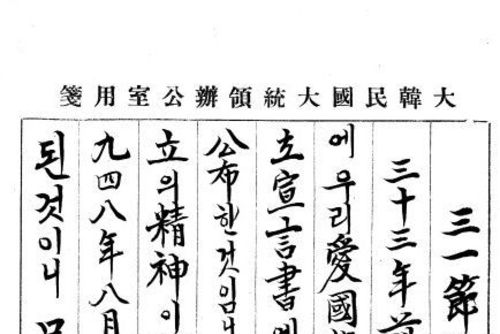 大韓民國大統領辦公室用箋
三一節
三十三年前
에 우리 愛國
立宣言書에
公布한 것임니
立의 精神이
九四八年八月
된 것이니